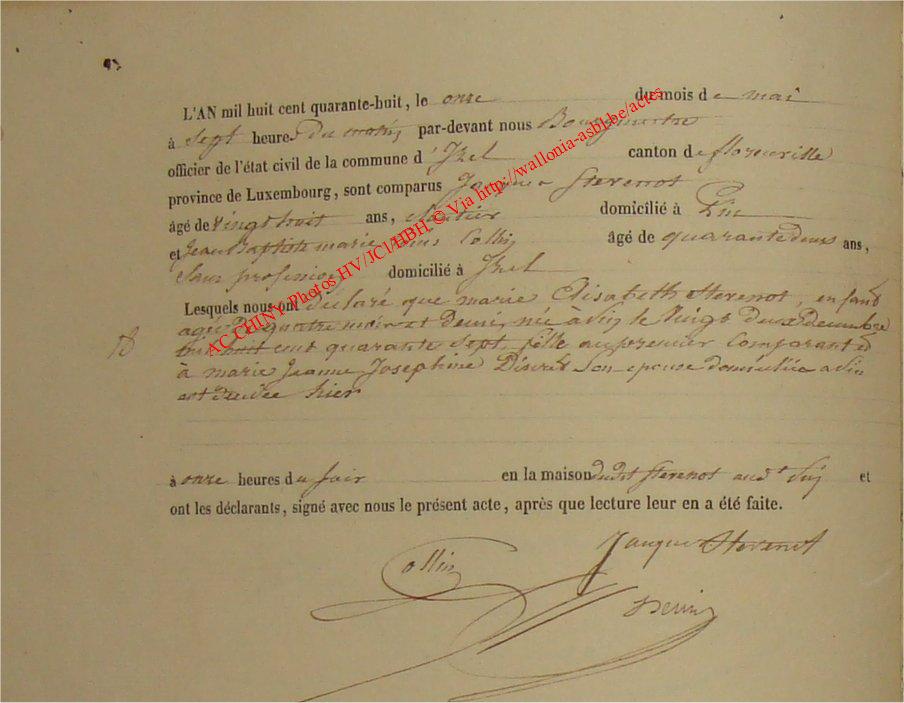 L'AN mil huit cent quarante-huit, le onze du mois de mai
à sept heures du matin par-devant nous Bourgmestre
officier de l'état civil de la commune d'Izel canton de florenville
province de Luxembourg, sont comparus Jacques Sterenot
âgé de Vingt huit ans, domicilié à Pin
et Jean Baptiste marie Collin âgé de quarante deux ans,
Sans profession domicilié à Izel
Lesquels nous ont déclaré que marie Elisabeth Sterenot, enfant
agée de quatre mois et Demi, née à Pin le Vingt deux decembre
huit cent quarante Sept, fille au premier Comparant et
à marie Jeanne Josephine Son epouse domiciliée a Pin
est Décédée hier
à onze heures du soir en la maison dudit Sterenot aud.t Pin et
ont les déclarants, signé avec nous le présent acte, après que lecture leur en a été faite.
Jacques Sterenot
Collin
AC CHINY. Photos HV/JCl/HBH, © Via http://wallonia-asbl.be/actes